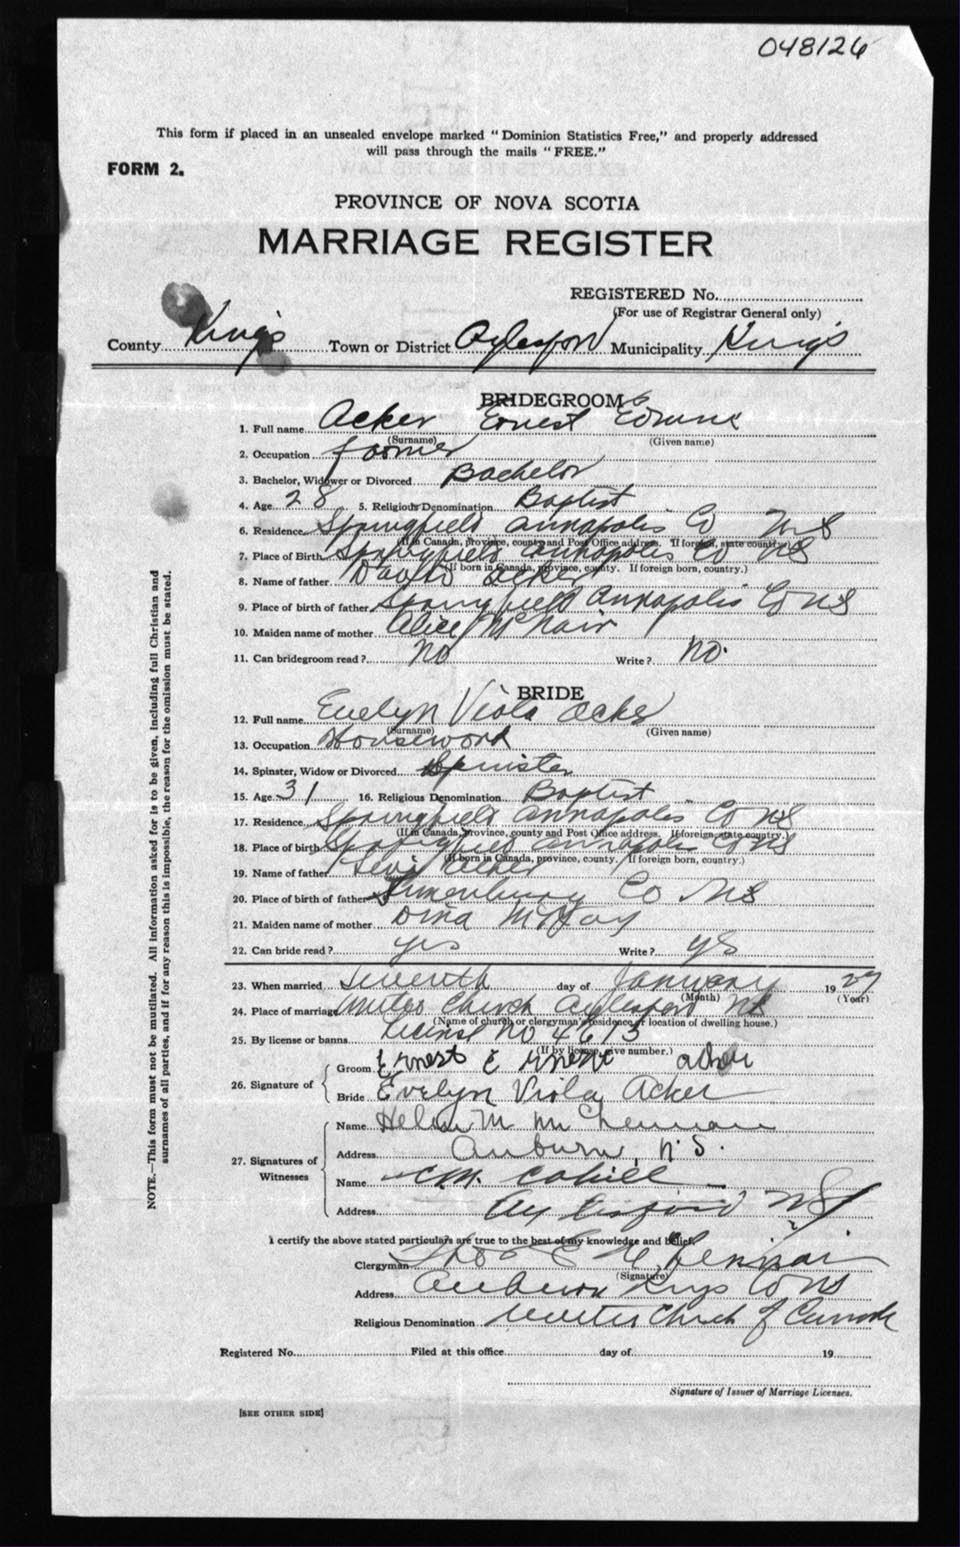 048126
This form if placed in an unsealed envelope marked "Dominion Statistics Free," and properly addressed
will pass through the mails "FREE."
FORM 2.
PROVINCE OF NOVA SCOTIA
MARRIAGE REGISTER
REGISTERED No.
(For use of Registrar General only)
County Kings Town or District Aylesford Municipality Kings
BRIDEGROOM
1. Full name Acker Ernest
(Surname) (Given name)
2. Occupation farmer
3. Bachelor, Widower or Divorced Bachelor
4. Age 28 5. Religious Denomination Baptist
6. Residence Springfield Annapolis Co NS
(If in Canada, province, county and Post Office address. If foreign, state country.)
7. Place of Birth Springfield Annapolis Co NS
(If born in Canada, province, county. If foreign born, country.)
8. Name of father David Acker
9. Place of birth of father Springfield Annapolis Co NS
10. Maiden name of mother Alice McNair
11. Can bridegroom read? No Write? No.
BRIDE
12. Full name Evelyn Viola Acker
(Surname) (Given name)
13. Occupation Housework
14. Spinster, Widow or Divorced Spinster
15. Age 31 16. Religious Denomination Baptist
17. Residence Springfield Annapolis Co NS
(If in Canada, province, county and Post Office address. If foreign, state country.)
18. Place of birth Springfield Annapolis Co NS
(If born in Canada, province, county. If foreign born, country.)
19. Name of father Levi Acker
20. Place of birth of father Lunenburg Co NS
21. Maiden name of mother Dina
22. Can bride read? yes Write? yes
23. When married Seventh day of January 1927
(Month) (Year)
24. Place of marriage United Church Aylesford NS
(Name of church or clergyman's residence or location of dwelling house.)
25. By license or banns License No 4613
(If by license, give number.)
26. Signature of
Groom Ernest E Acker
Bride Evelyn Viola Acker
27. Signatures of Witnesses
Name Helen M
Address Auburn, N.S.
Name C.M. Cahill
Address Aylesford NS
I certify the above stated particulars are true to the best of my knowledge and belief.
Clergyman
(Signature)
Address Auburn Kings Co NS
Religious Denomination United Church of Canada
Registered No. Filed at this office day of 19
Signature of Issuer of Marriage Licenses.
[SEE OTHER SIDE]
NOTE.—This form must not be mutilated. All information asked for is to be given, including full Christian and
surnames of all parties, and if for any reason this is impossible, the reason for the omission must be stated.